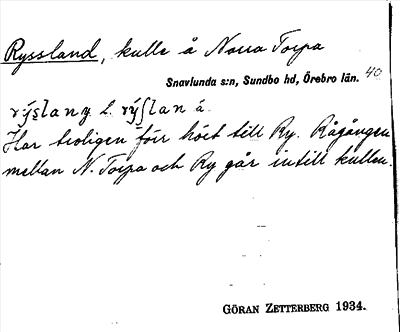 Ryssland, kulle å Norra Torpa
Snavlunda s:n, Sundbo hd, Örebro län. 40
Har troligen förr hört till Ry. Rågången
mellan N. Torpa och Ry går intill kullen.
GÖRAN ZETTERBERG 1934.